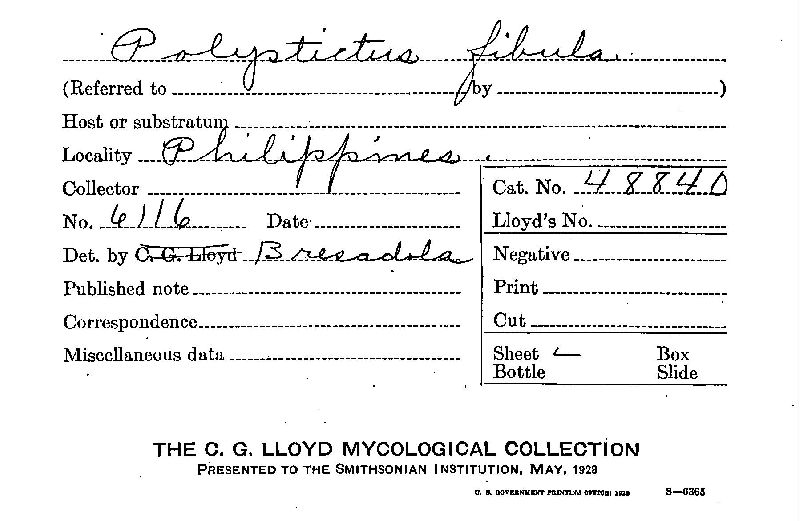 Polystictus fibula
(Referred to by )
Host or substratum
Locality Philippines.
Collector
Cat. No. 48840
No. 6116 Date
Lloyd's No.
Det. by C. G. Lloyd Bresadola
Negative
Published note
Print
Correspondence
Cut
Miscellaneous data
Sheet Box
Bottle Slide
THE C. G. LLOYD MYCOLOGICAL COLLECTION
PRESENTED TO THE SMITHSONIAN INSTITUTION, MAY, 1928
U. S. GOVERNMENT PRINTING OFFICE: 1929 8—6365